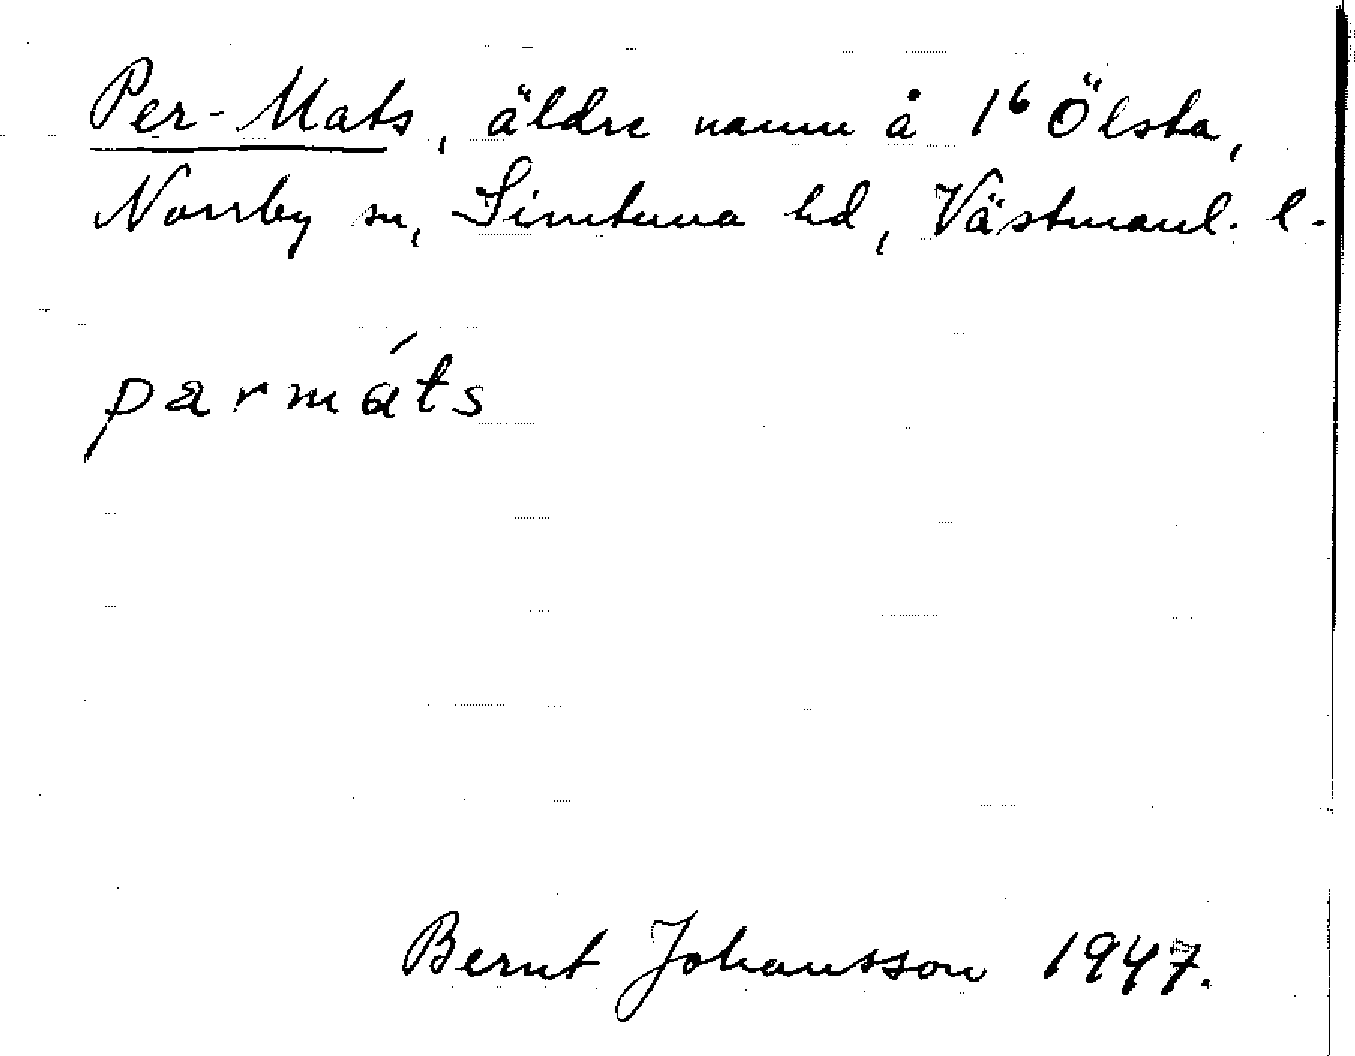 Per-Mats, äldre namn å 1⁶ Ölsta,
Norrby sn, Simtuna hd, Västmanl. l.
parmáts
Bernt Johansson 1947.